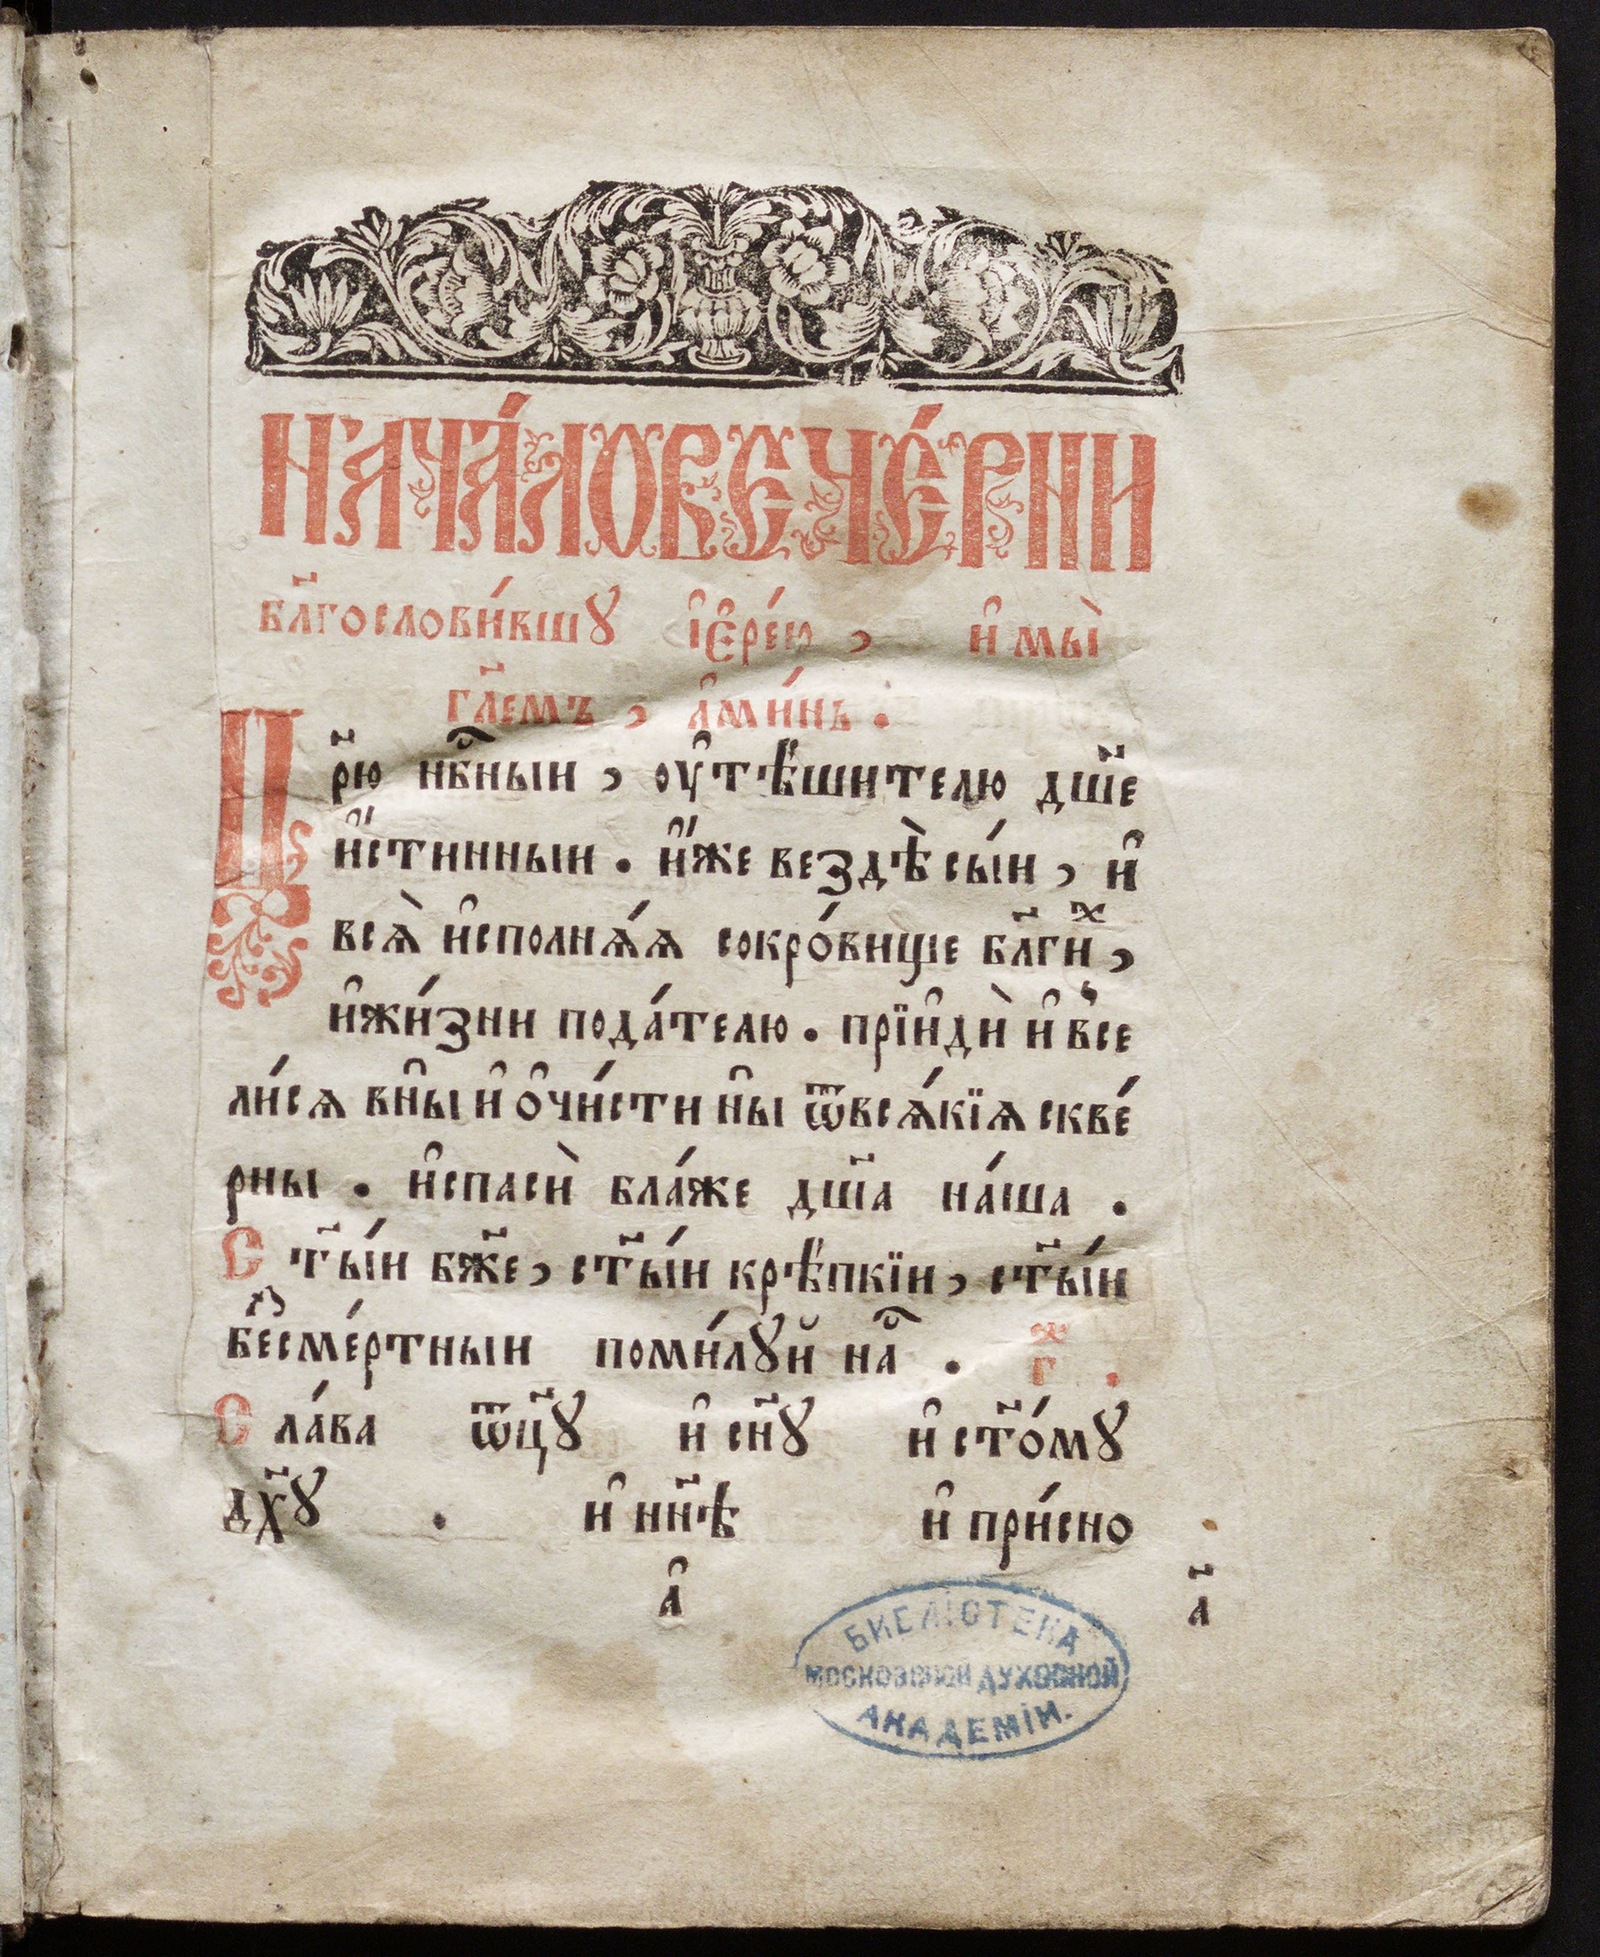 НАЧА́ЛО ВЕЧЕ́РНИ
бл҃гослови́вшꙋ і҆ере́ю, и҆ мы̀
гл҃емъ, а҆ми́нь.
Цр҃ю нбⷭ҇ныи, оу҆тѣ́шителю дш҃е
и҆́стинныи. и҆́же вездѣ̀ сы́и, и҆
всѧ̀ и҆сполнѧ́ѧ сокро́вище бл҃гиⷯ,
и҆жи́зни пода́телю. прїи҆дѝ и҆ все
ли́сѧ вны҆ и҆ ѡ҆чи́сти ны҆ ѿвсѧ́кїѧ скве́
рны. и҆спасѝ бла́же дш҃а на́ша.
Ст҃ы́и бж҃е, ст҃ы́и крѣ́пкїи, ст҃ы́и
беⷥсме́ртныи поми́лꙋй наⷭ҇. гⷤ.
Сла́ва ѿц҃ꙋ и҆ сн҃ꙋ и҆ ст҃о́мꙋ
дх҃ꙋ. и҆ нн҃ѣ и҆ при́сно
а҆ а҃
БИБЛІОТЕКА
МОСКОВСКОЙ ДУХОВНОЙ
АКАДЕМІИ.